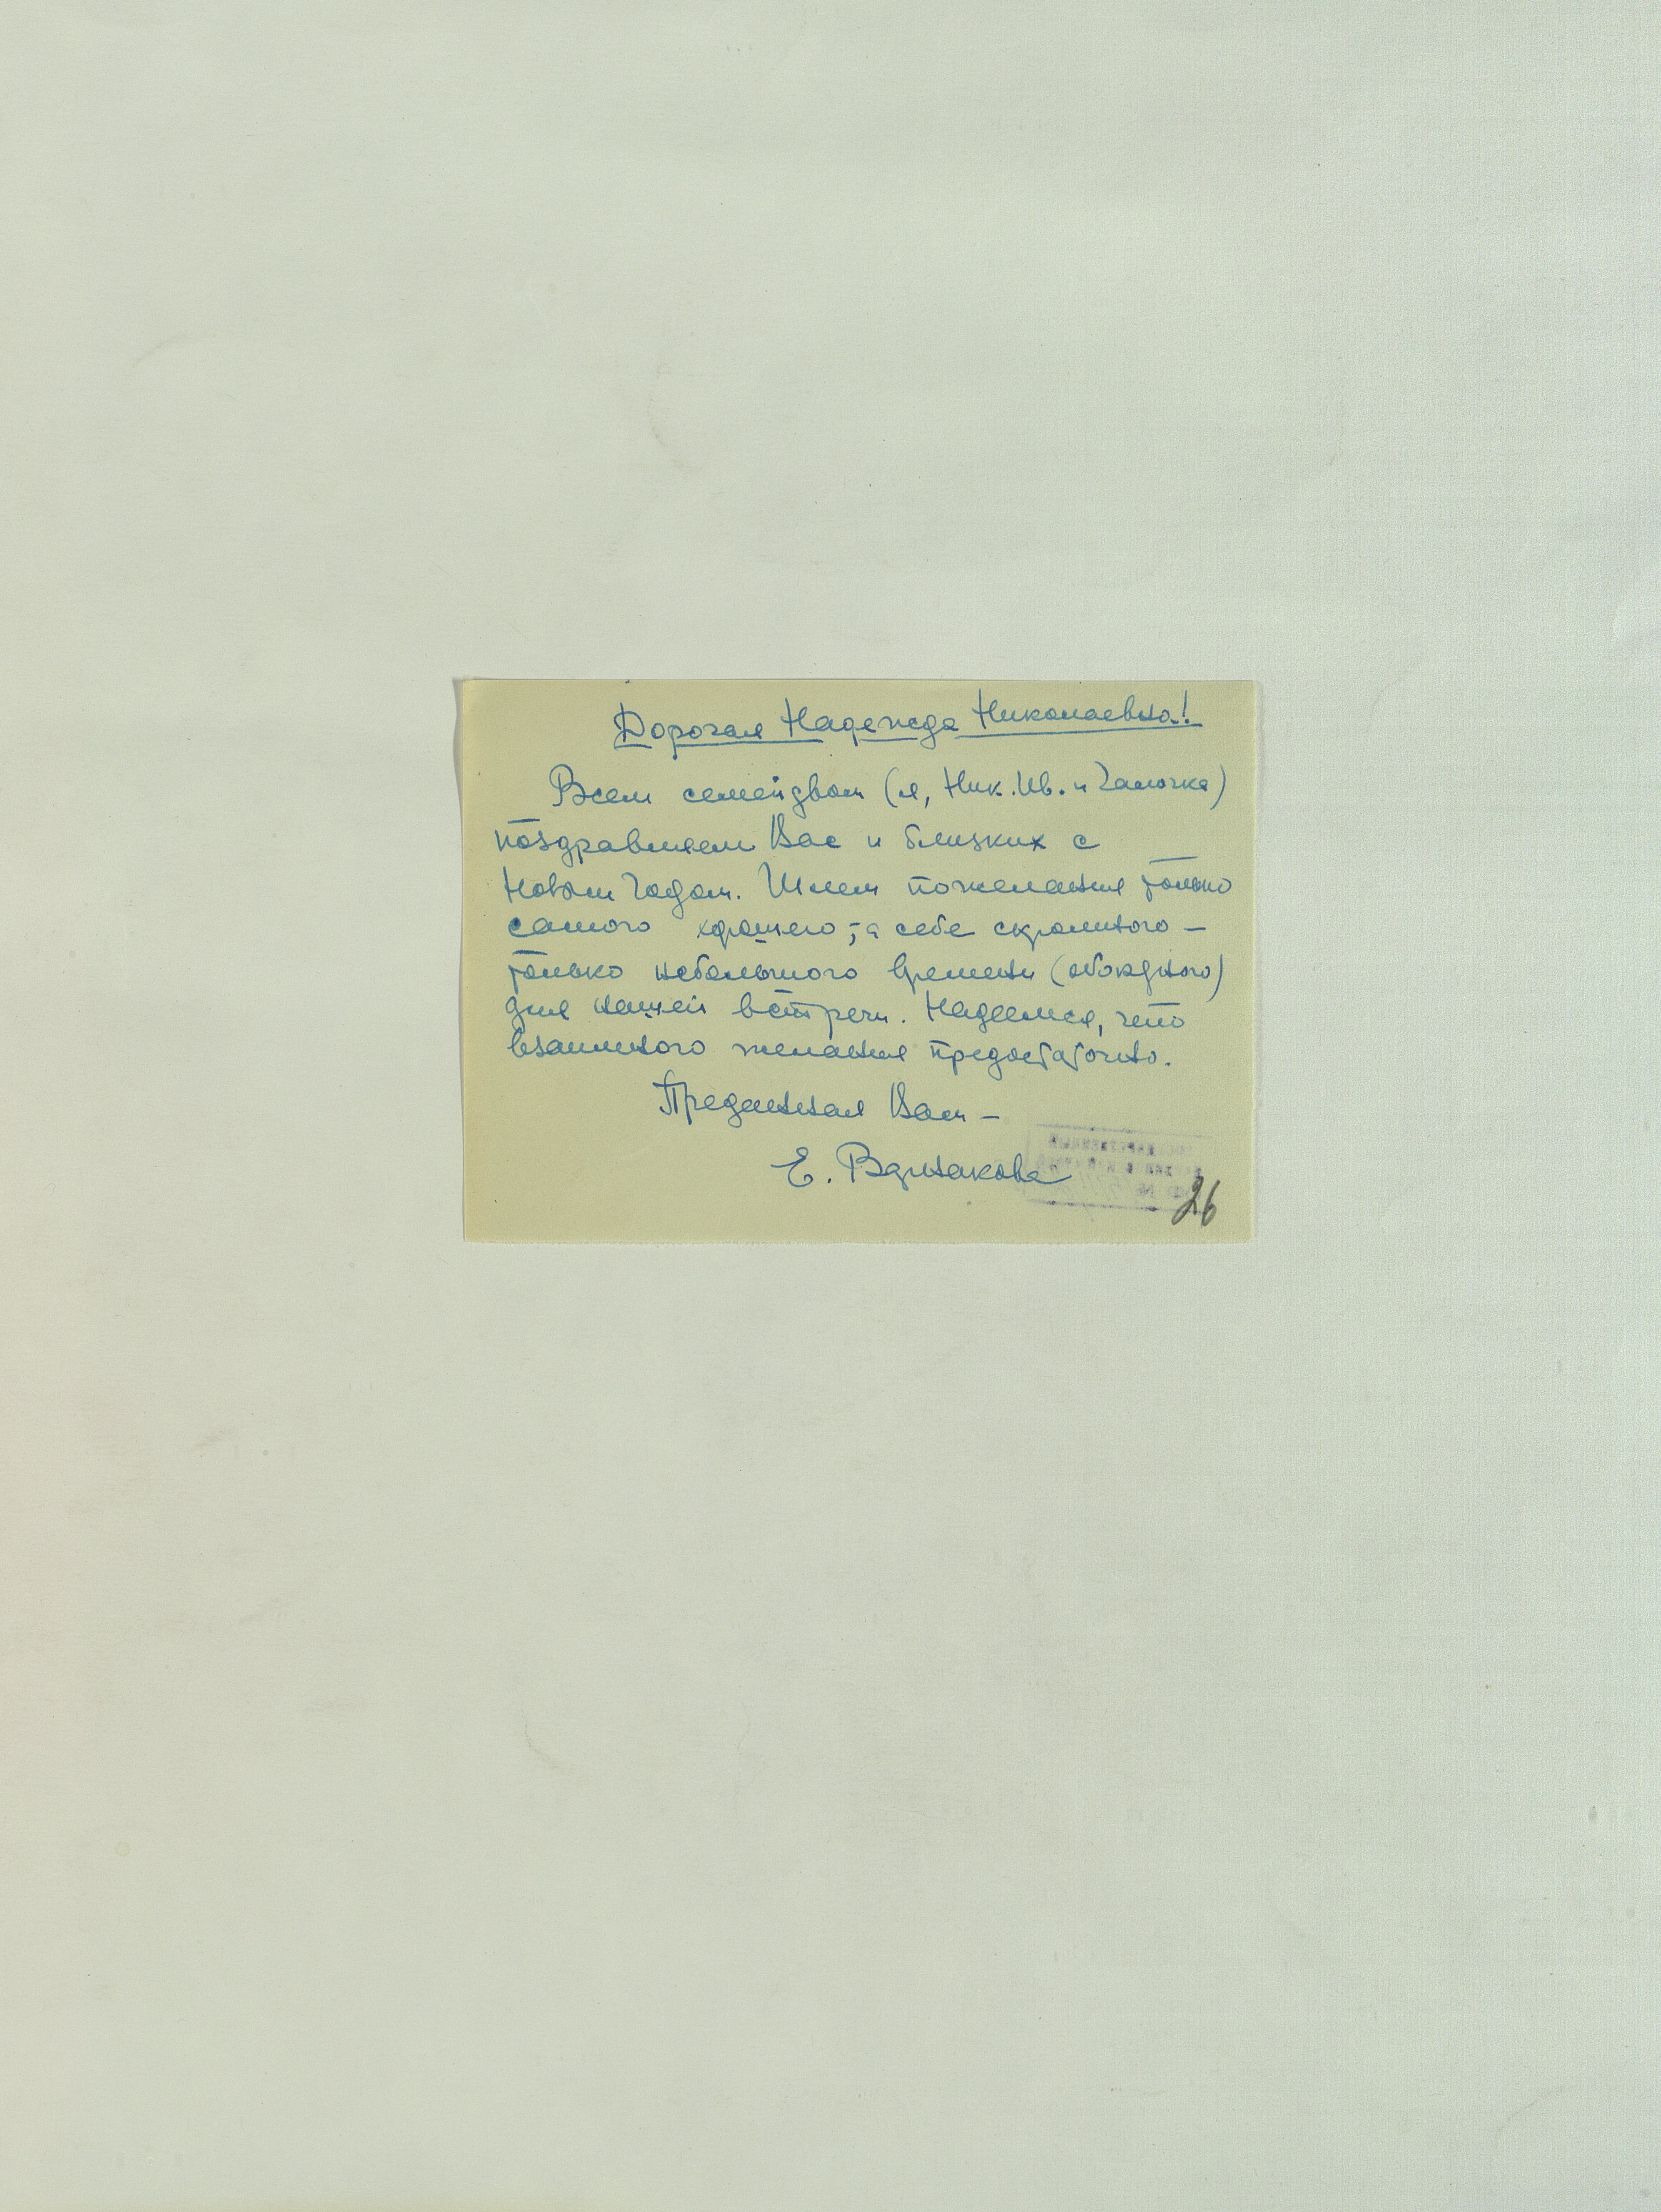 Дорогая Надежда Николаевна!
Всем семейством (я, Ник. Ив. и Галочка)
поздравляем Вас и близких с
Новым Годом. Шлем пожелания только
самого хорошего, а себе скромного –
только небольшого времени (обоюдного)
для нашей встречи. Надеемся, что
взаимного желания предостаточно.
Преданная Вам –
Е.
26